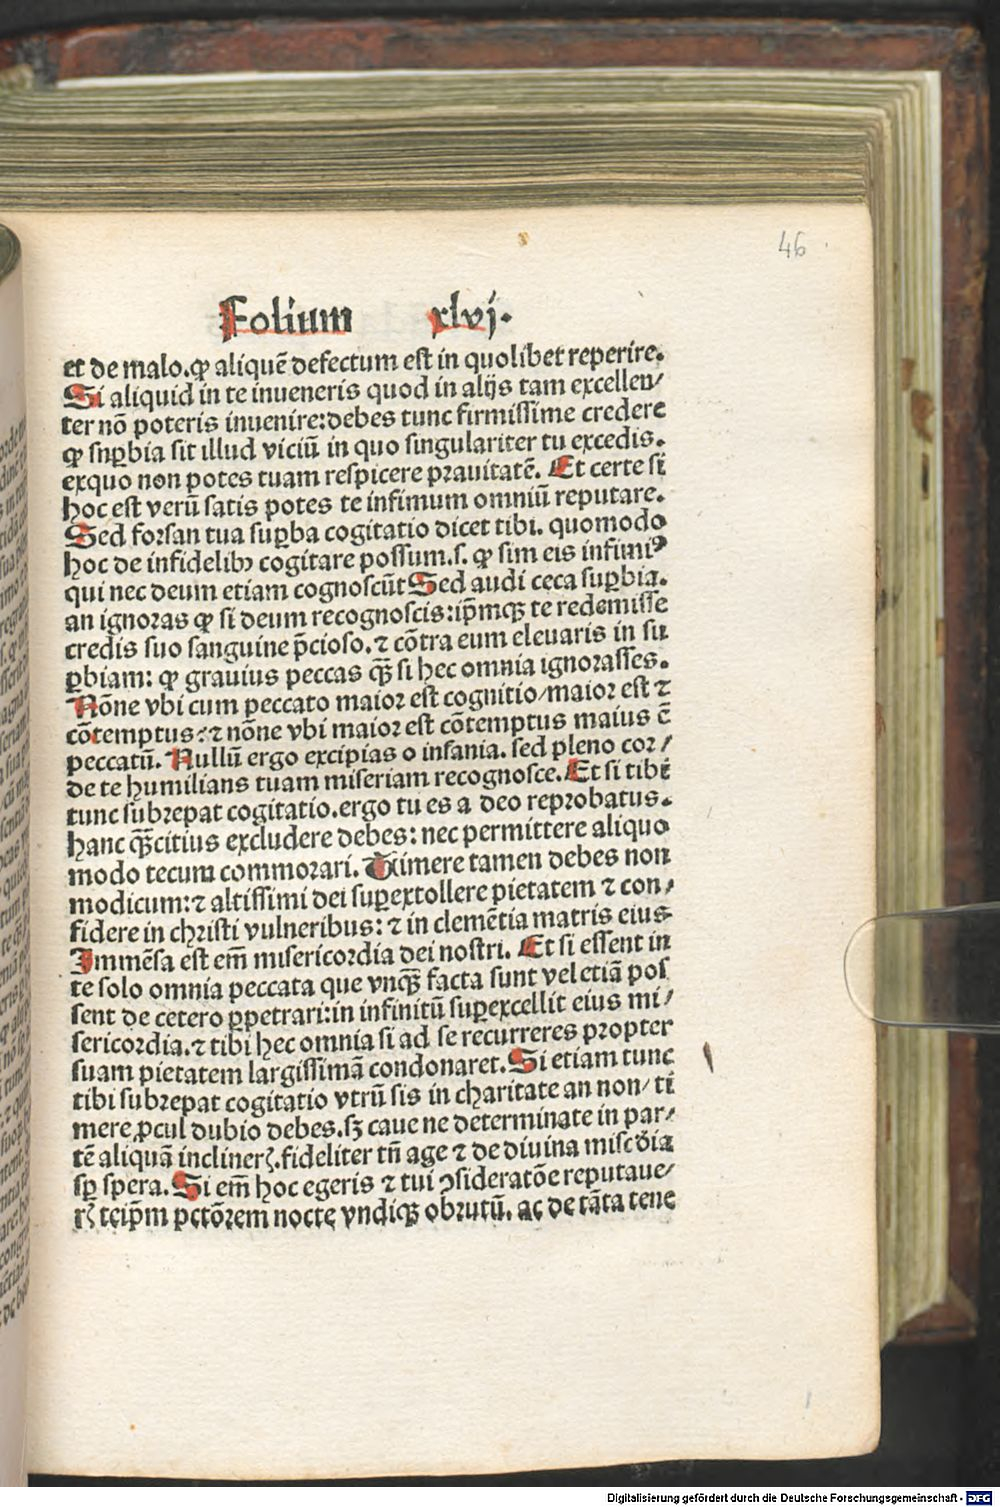 46
Folium xlvj.
et de malo.ꝙ aliquē defectum est in quolibet reperire.
Si aliquid in te inueneris quod in alijs tam excellen/
ter nō poteris inuenire:debes tunc firmissime credere
ꝙ snꝑbia sit illud viciū in quo singulariter tu excedis.
exquo non potes tuam respicere prauitatē. Et certe si
hoc est verū satis potes te infimum omniū reputare.
Sed forsan tua suꝑba cogitatio dicet tibi. quomodo
hoc de infidelibꝫ cogitare possum.s. ꝙ sim eis infimiꝰ
qui nec deum etiam cognoscūt Sed audi ceca suꝑbia.
an ignoras ꝙ si deum recognoscis:ip̄mqꝫ te redemisse
credis suo sanguine p̄cioso.⁊ cōtra eum eleuaris in su
ꝑbiam: ꝙ grauius peccas qꝫ̄ si hec omnia ignorasses.
Nōne vbi cum peccato maior est cognitio/maior est ⁊
cōtemptus:⁊ nōne vbi maior est cōtemptus maius ē
peccatū. Nullū ergo excipias o insania. sed pleno cor/
de te humilians tuam miseriam recognosce. Et si tibi
tunc subrepat cogitatio.ergo tu es a deo reprobatus.
hanc qꝫ̄citius excludere debes: nec permittere aliquo
modo tecum commorari. Timere tamen debes non
modicum:⁊ altissimi dei suꝑextollere pietatem ⁊ con/
fidere in christi vulneribus: ⁊ in clemētia matris eius
Immēsa est em̄ misericordia dei nostri. Et si essent in
te solo omnia peccata que vnqꝫ̄ facta sunt vel etiā pos
sent de cetero ꝑpetrari:in infinitū suꝑexcellit eius mi/
sericordia.⁊ tibi hec omnia si ad se recurreres propter
suam pietatem largissimā condonaret. Si etiam tunc
tibi subrepat cogitatio vtrū sis in charitate an non/ ti
mere ꝓcul dubio debes.sꝫ caue ne determinate in par/
tē aliquā inclinerꝭ.fideliter tn̄ age ⁊ de diuina misc̄dia
sp̄ spera. Si em̄ hoc egeris ⁊ tui ꝯsideratōe reputaue/
rꝭ teip̄m pctōrem nocte vndiqꝫ obrutū. ac de tāta tene
Digitalisierung gefördert durch die Deutsche Forschungsgemeinschaft - DFG